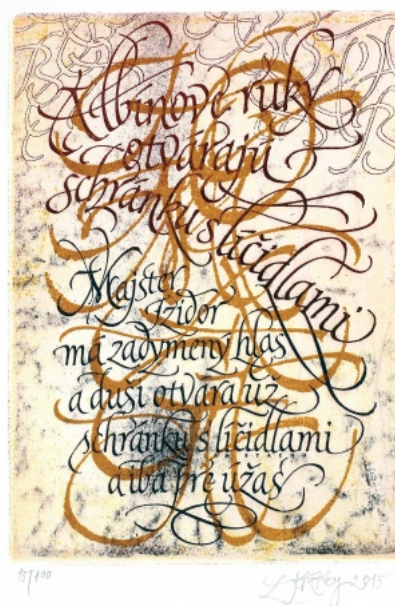 Albínové ruky
otvárajú
schránku s líčidlami
Majster
Izidor
má zadymený hlas
a duši otvára už
schránku s líčidlami
a iba pre úžas
15/100
2015